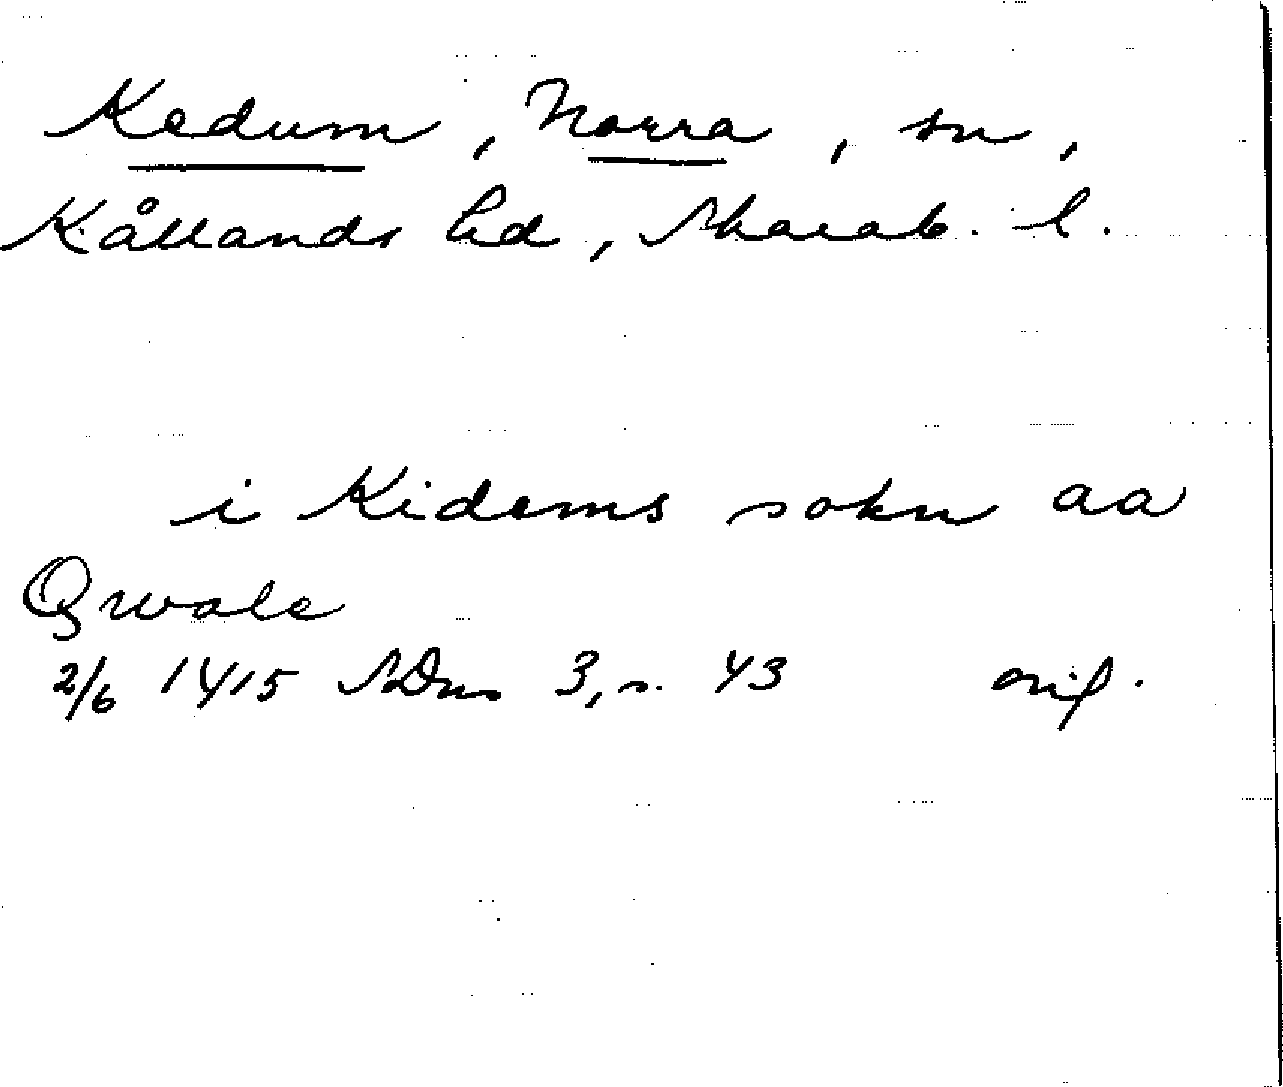 Kedum, Norra, sn,
Kållands hd, Skarab. l.
i Kidems sokn aa
Qwale
2/6 1415 SDns 3, s. 43 orig.